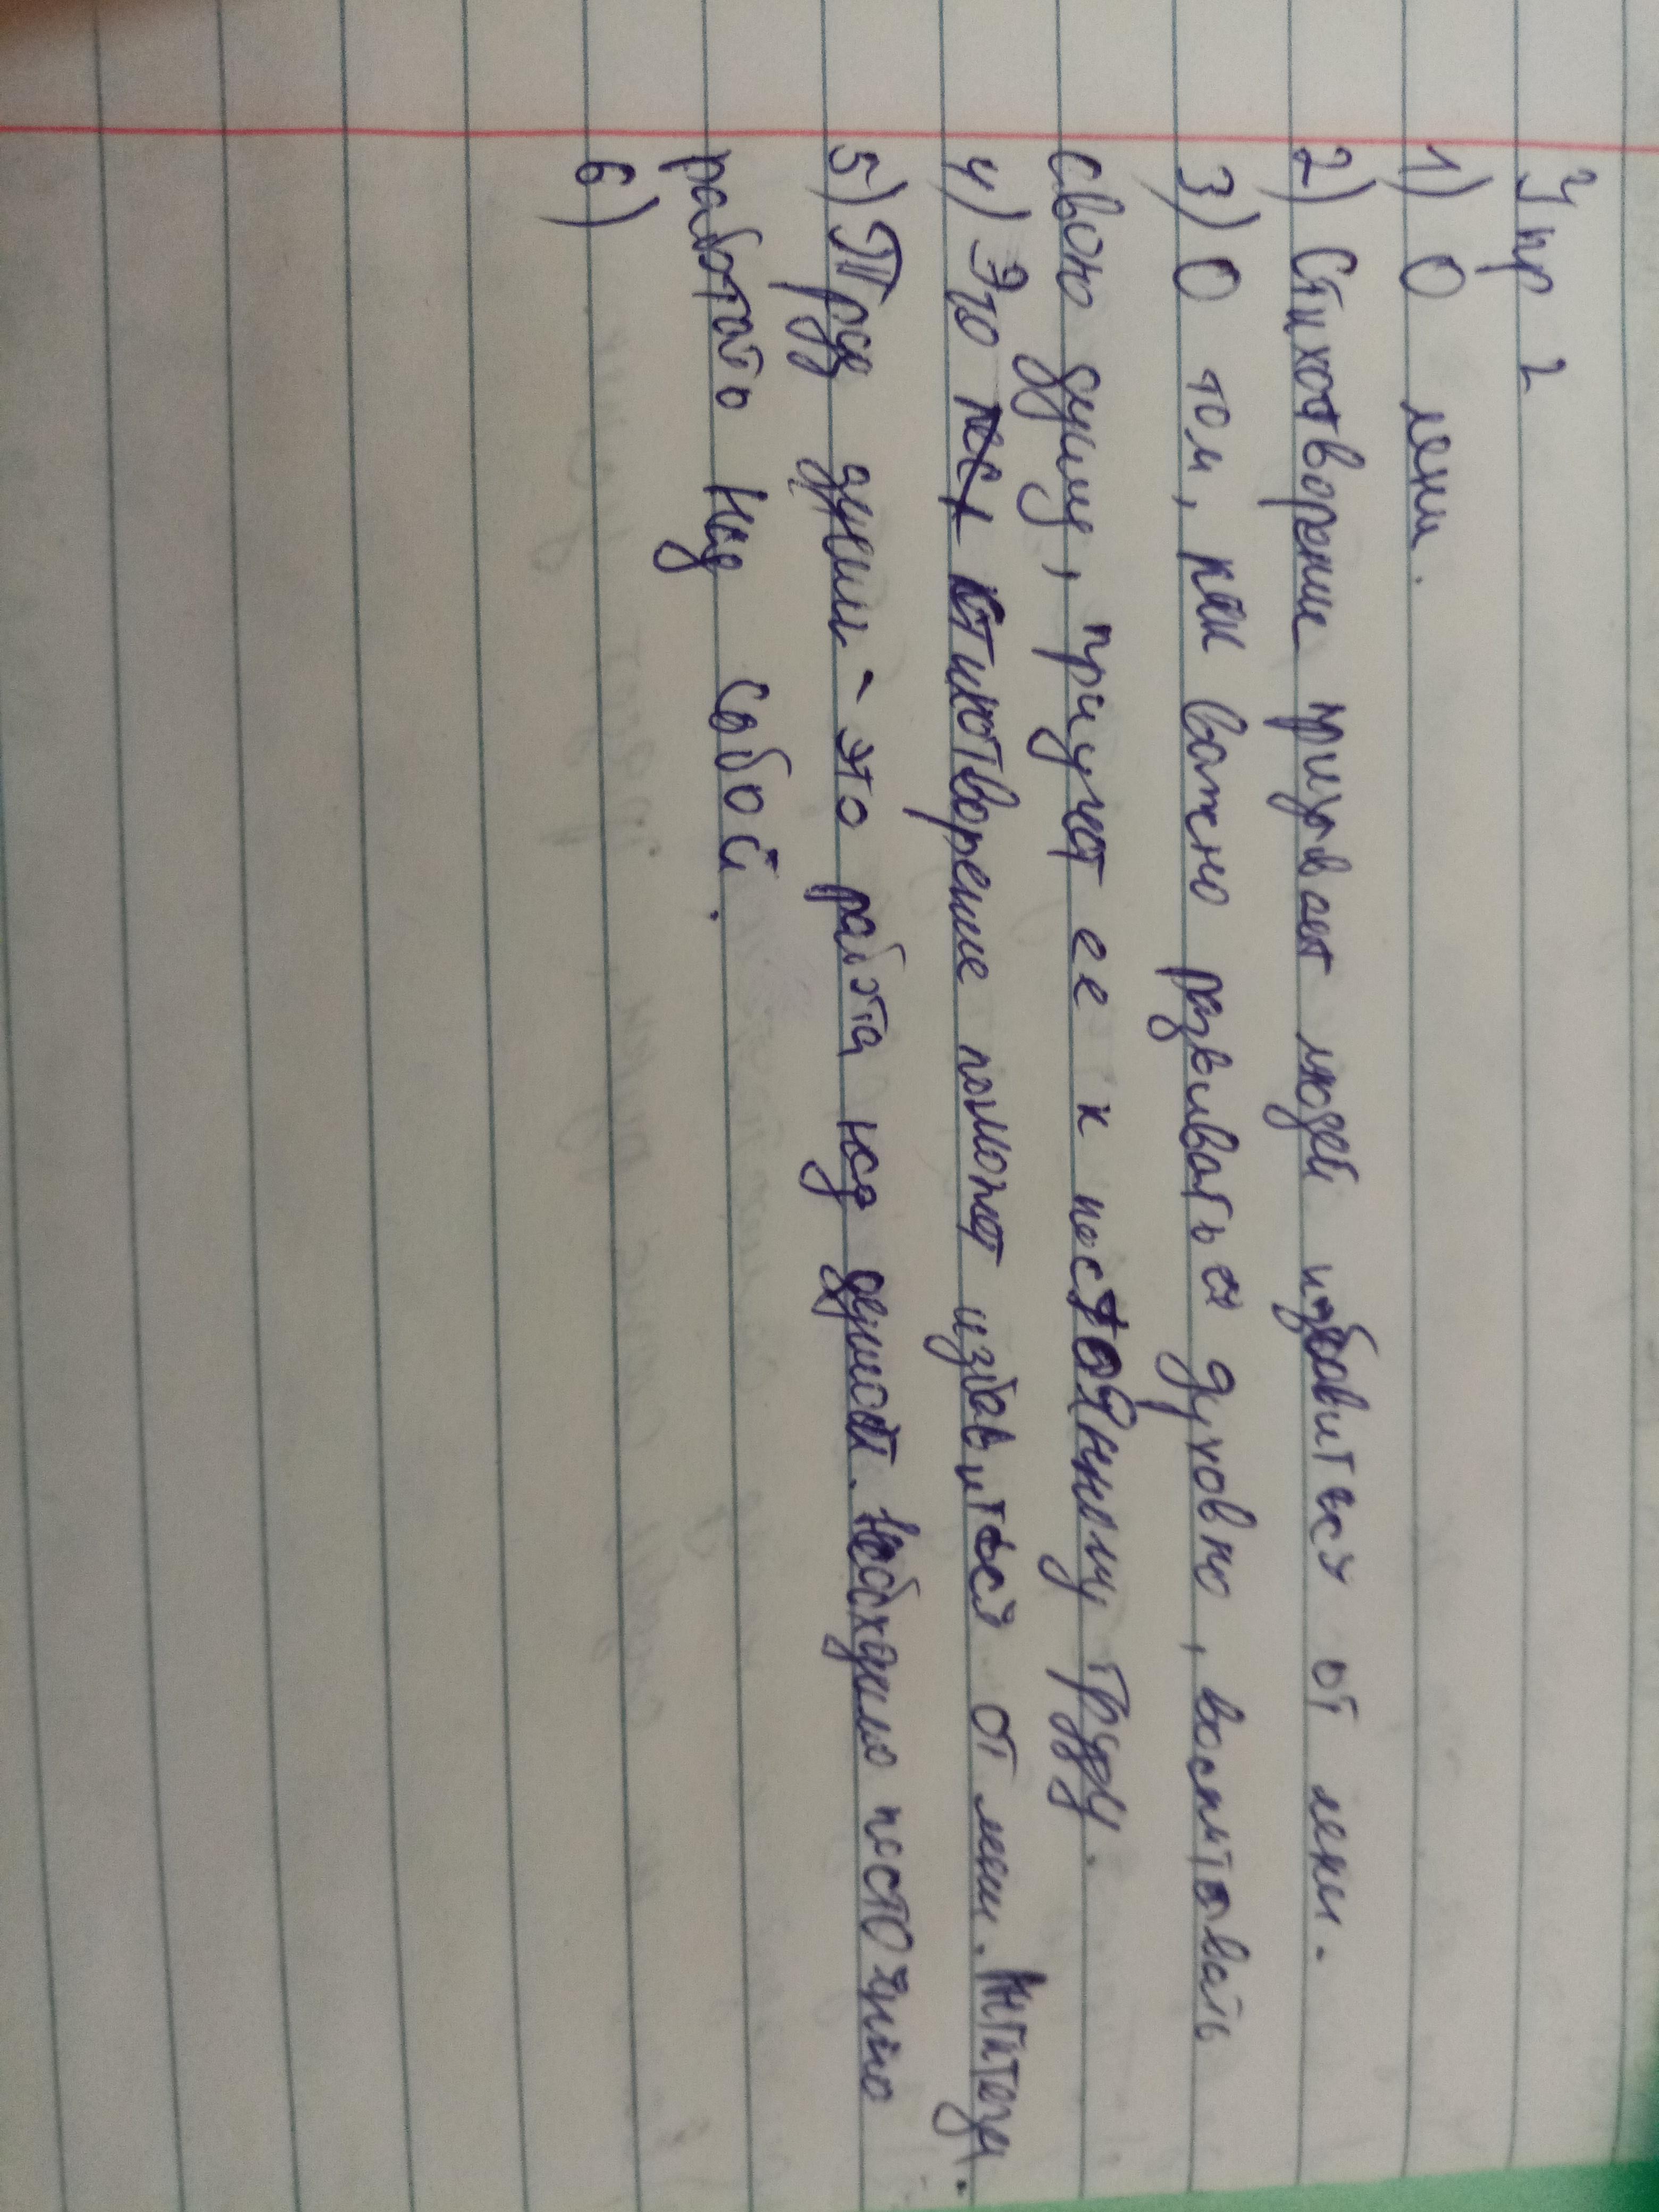 Упр 2
1) О лени.
2) Стихотворение призывает людей избавиться от лени.
3) О том, как важно развиваться духовно, воспитовать
свою душу, приучет ее к постоянному труду.
4) Это стихотворение поможет избавиться от лени. Антитеза.
5) Труд души - это работа над душой. Необходимо постоянно
работать над собой.
6)